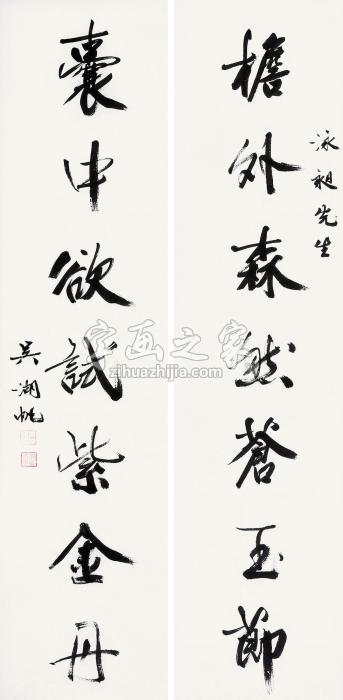 泳昶先生
檐外森然蒼玉節
囊中欲試紫金丹
吳湖帆
字画之家
zihuazhijia.com